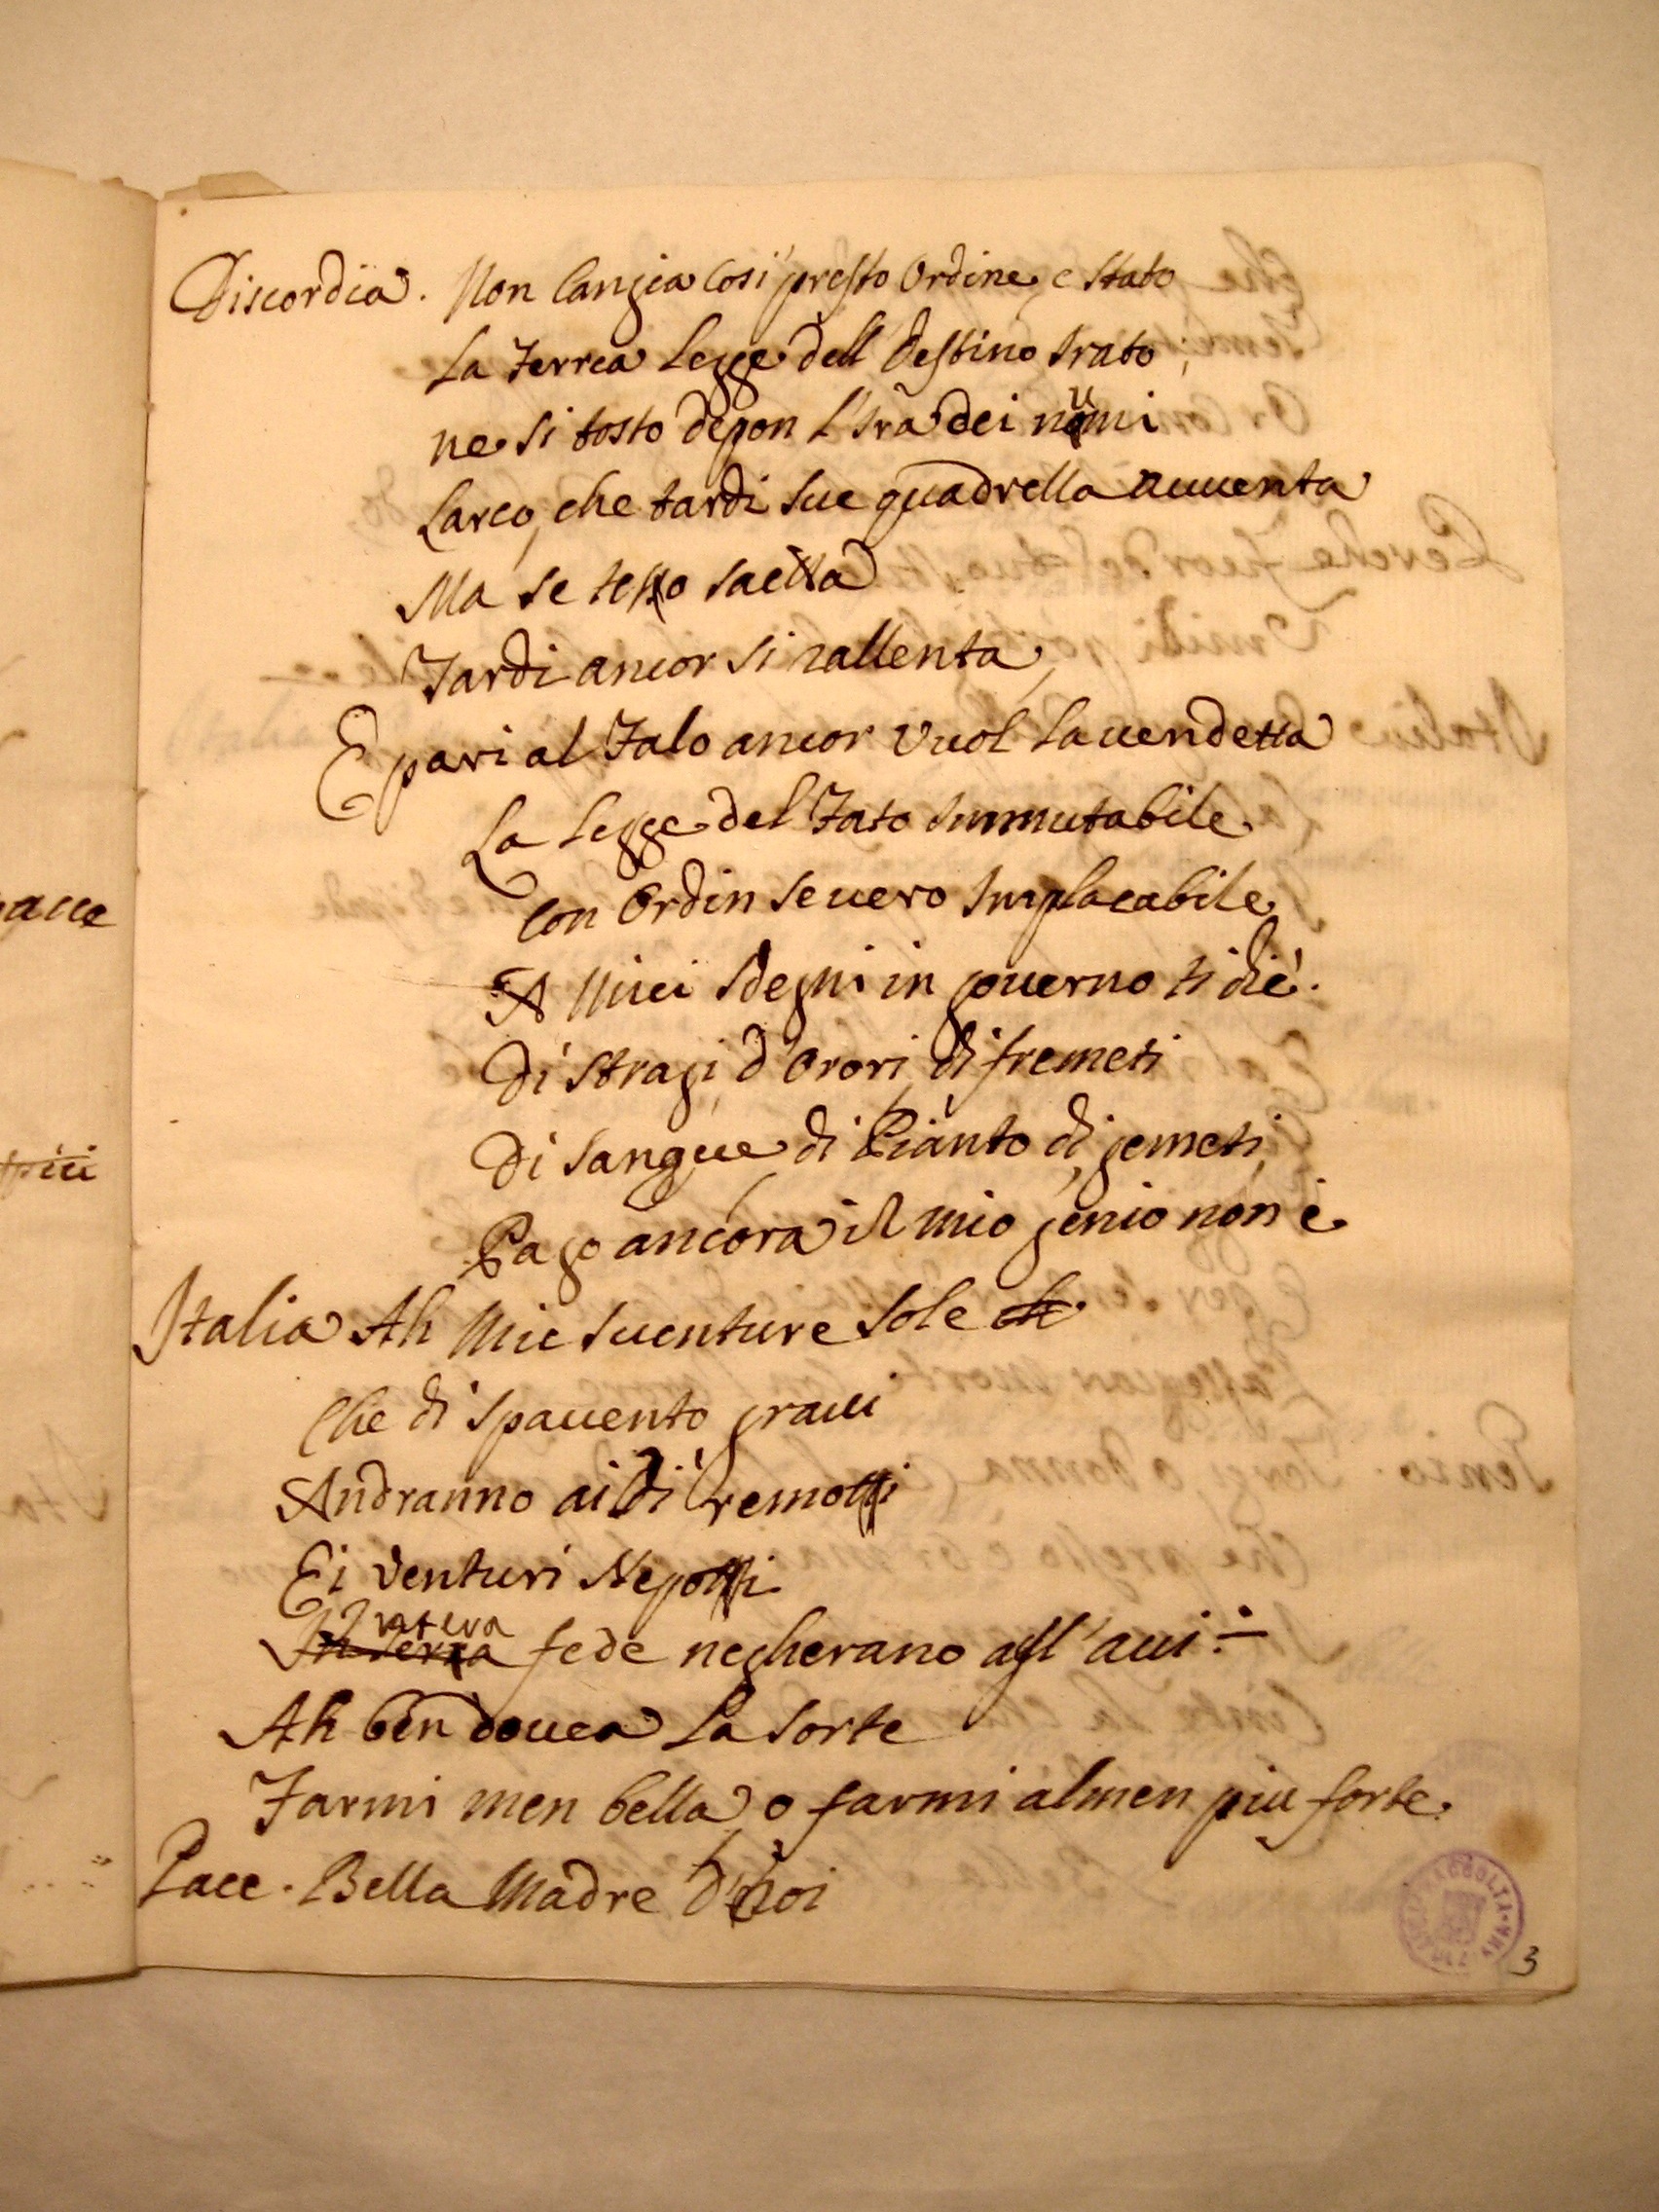 Discordia. Non Cangia Cosi presto Ordine, e Stato
La ferrea Legge dell destino Irato,
ne si tosto depon L'Ira dei numi
Larco, che tardi sue quadrella auuenta
Ma se saetta
Tardi ancor si rallenta,
E pari al Falo ancor Vuol La uendetta
La Legge del Fato Immutabile
Con Ordin seuero Implacabile
A Miei Sdegni in gouerno ti diè.
Di Stragi, d'Orori, di fremeti
Di Sangue, di Pianto, di gemeti,
Pago ancora il mio genio non è
Italia Ah Mie Suenture Sole
Che di Spauento graui
Andranno ai dì remoti
E i Venturi Nepoti
intera fede negherano agl'aui:
Ah ben douea La Sorte
Farmi men bella, o farmi almen piu forte.
Pace. Bella Madre D'Eroi
3